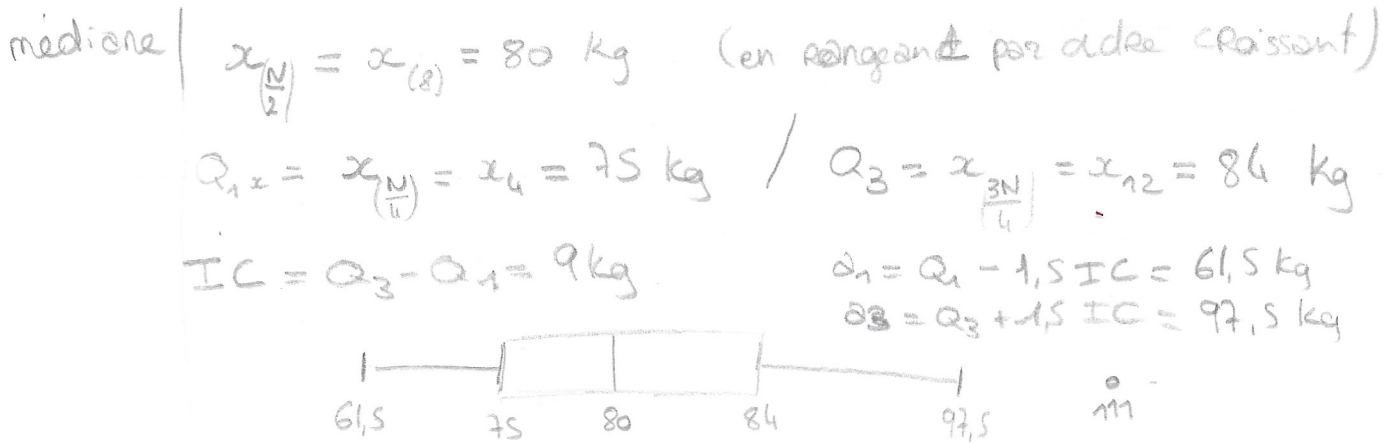 médiane | x_(N/2) = x_(8) = 80 kg (en rangeant par ordre croissant)
Q_1x = x_(N/4) = x_4 = 75 kg / Q_3 = x_(3N/4) = x_12 = 84 kg
IC = Q_3 - Q_1 = 9 kg a_1 = Q_1 - 1,5 IC = 61,5 kg
a_3 = Q_3 + 1,5 IC = 97,5 kg
61,5 75 80 84 97,5 111